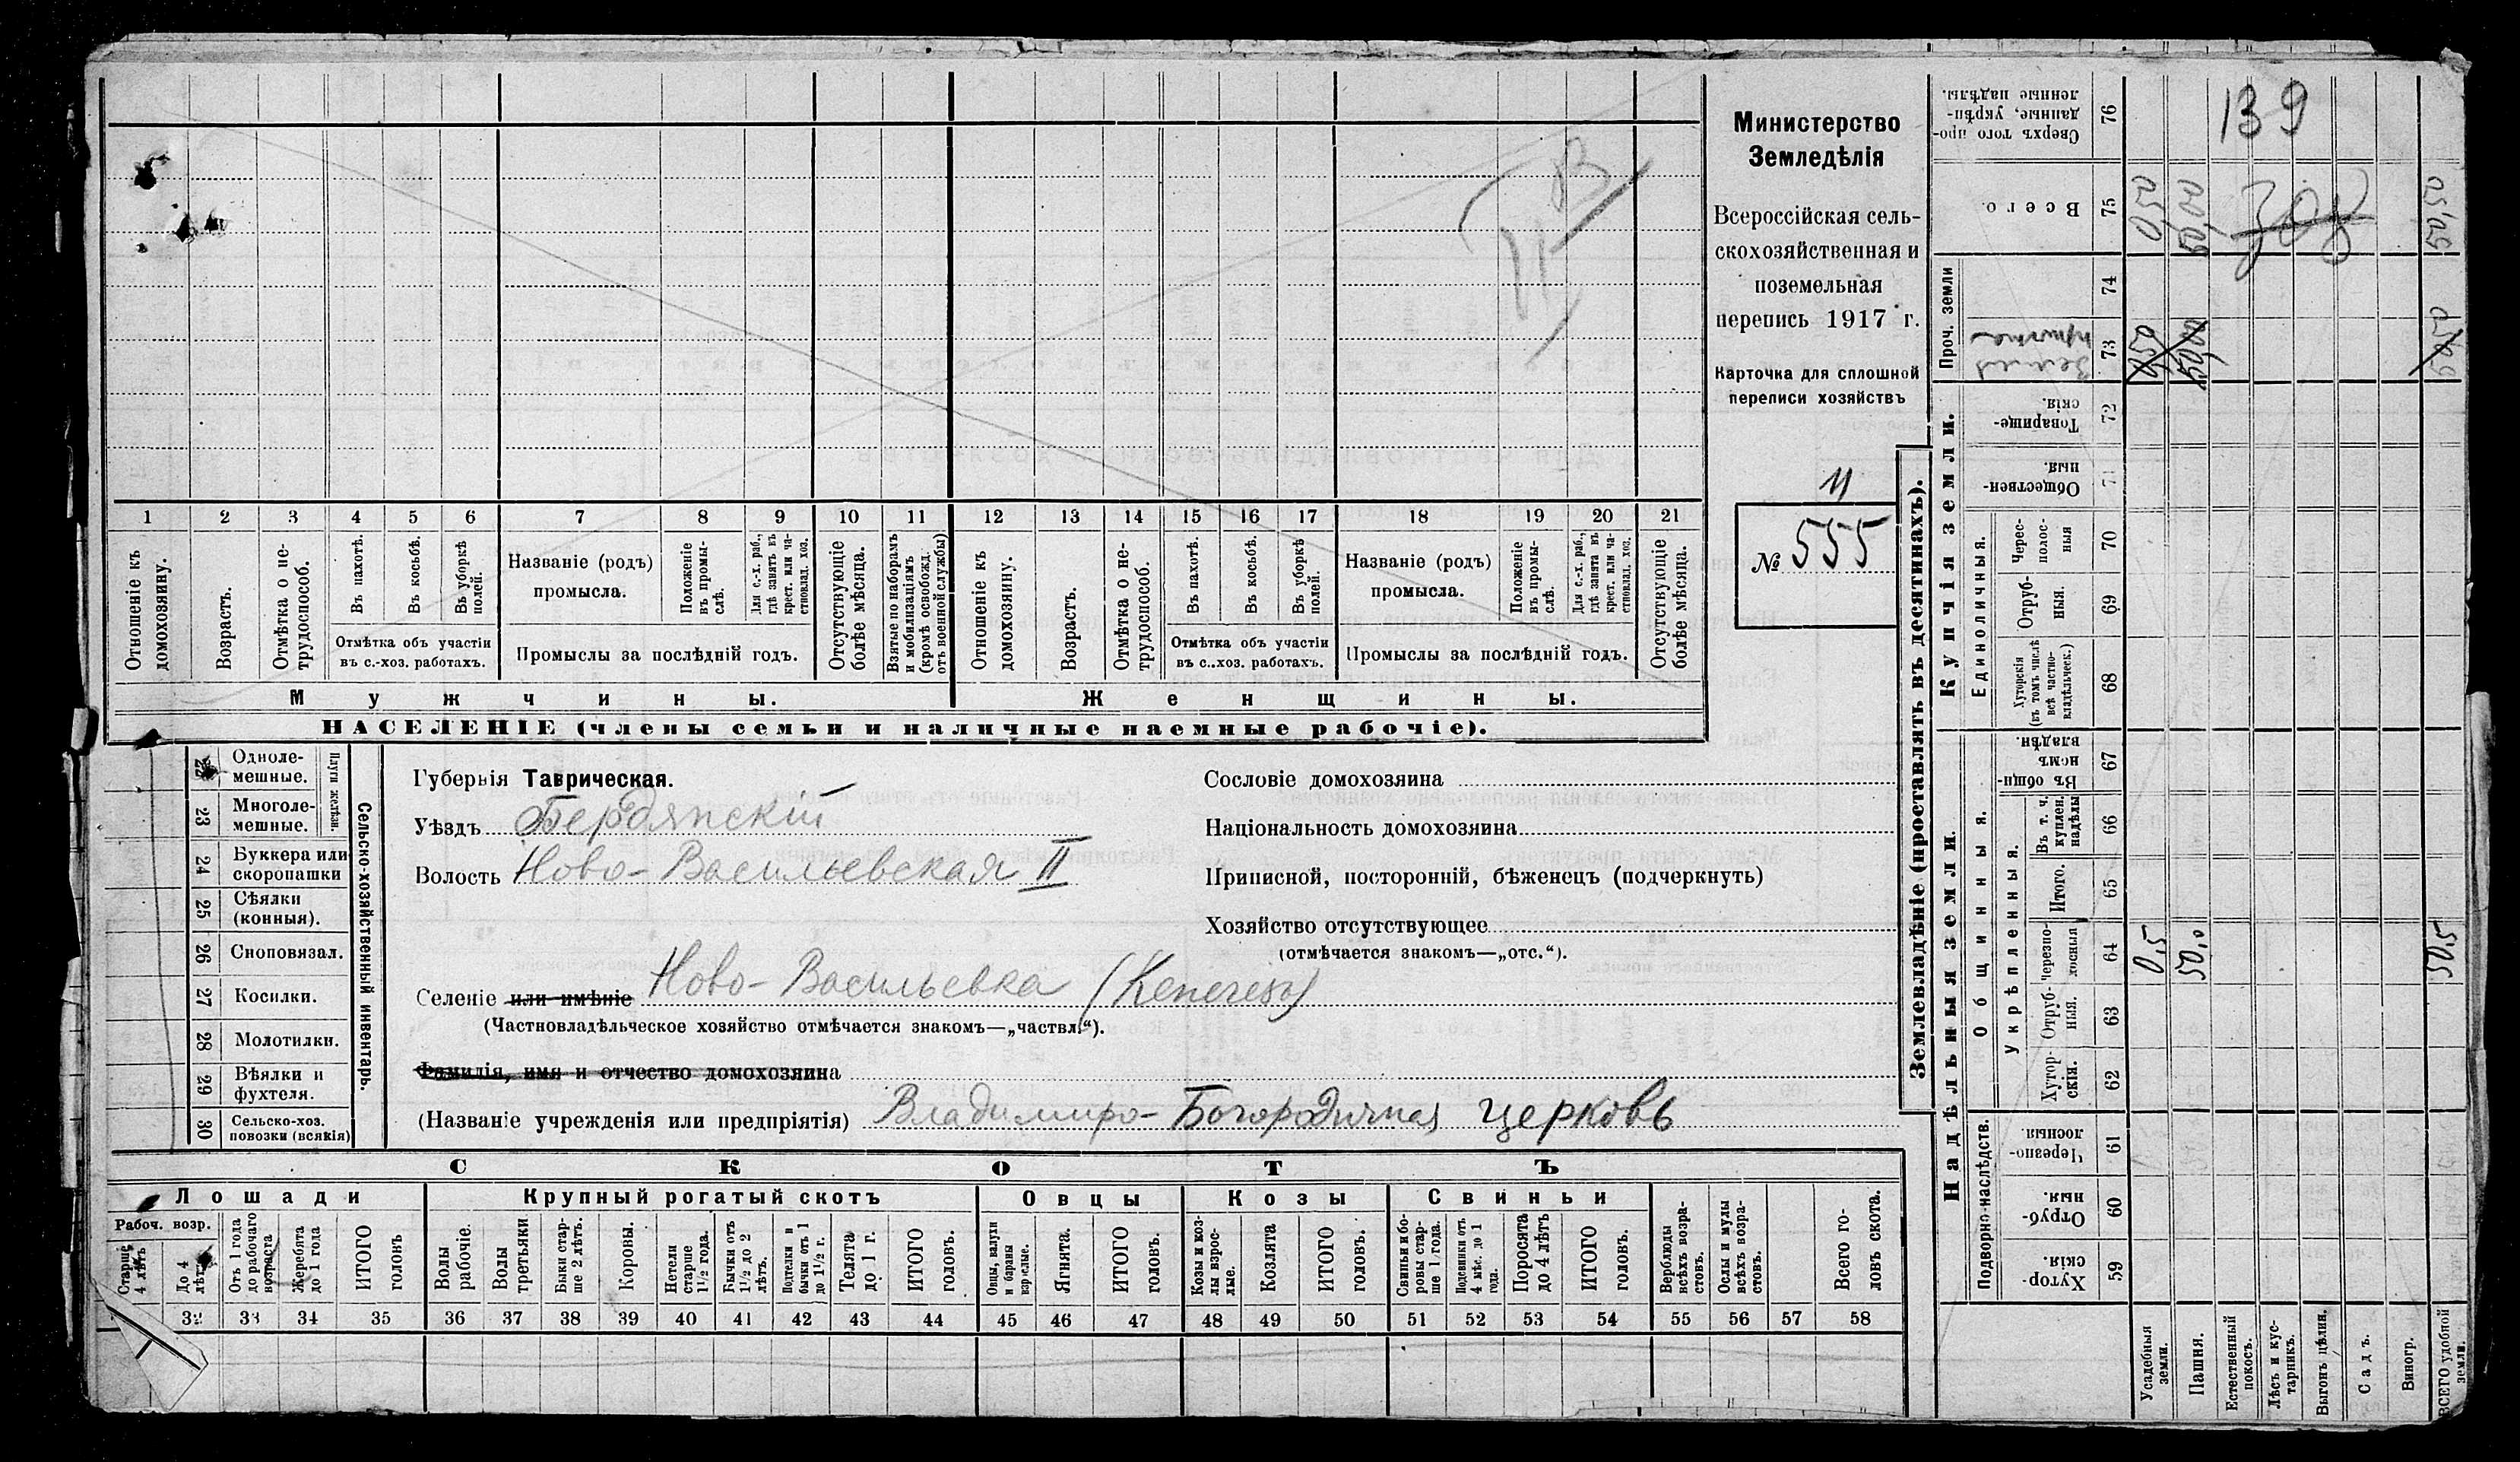 Министерство
Земледѣлія
Всероссійская сель-
скохозяйственная и
поземельная
перепись 1917 г.
Карточка для сплошной
переписи хозяйствъ
11
№ 555
1 2 3 4 5 6 7 8 9 10 11 12 13 14 15 16 17 18 19 20 21
Отношеніе къ домохозяину.
Возрастъ.
Отмѣтка о не-трудоспособ.
Въ пахотѣ.
Въ косьбѣ.
Въ уборкѣ полей.
Отмѣтка объ участіи
въ с.-хоз. работахъ.
Названіе (родъ)
промысла.
Положеніе въ промы-слѣ.
Для с.-х. раб., гдѣ занятъ въ крест. или ча-стновлад. хоз.
Промыслы за послѣдній годъ.
Отсутствующіе болѣе мѣсяца.
Взятые по наборамъ и мобилизаціямъ (кромѣ освобожд. отъ военной службы)
Отношеніе къ домохозяину.
Возрастъ.
Отмѣтка о не-трудоспособ.
Въ пахотѣ.
Въ косьбѣ.
Въ уборкѣ полей.
Отмѣтка объ участіи
въ с..хоз. работахъ.
Названіе (родъ)
промысла.
Положеніе въ промы-слѣ.
Для с.-х. раб., гдѣ занята въ крест. или ча-стновлад. хоз.
Промыслы за послѣдній годъ.
Отсутствующіе болѣе мѣсяца.
Мужчины.
Женщины.
НАСЕЛЕНІЕ (члены семьи и наличные наемные рабочіе).
22 Одноле-мешные.
23 Многоле-мешные.
Плуги желѣзн.
24 Буккера или скоропашки
25 Сѣялки (конныя).
26 Сноповязал.
27 Косилки.
28 Молотилки.
29 Вѣялки и фухтеля.
30 Сельско-хоз. повозки (всякія)
Сельско-хозяйственный инвентарь.
Губернія Таврическая.
Уѣздъ Бердянскій
Волость Ново-Васильевская II
Селеніе или имѣніе Ново-Васильевка (Кенегезъ)
(Частновладѣльческое хозяйство отмѣчается знакомъ—„частвл.“).
Фамилія, имя и отчество домохозяина
(Названіе учрежденія или предпріятія) Владимиро-Богородичная церковь
Сословіе домохозяина
Національность домохозяина
Приписной, посторонній, бѣженецъ (подчеркнуть)
Хозяйство отсутствующее
(отмѣчается знакомъ—„отс.“).
СКОТЪ
Лошади
Крупный рогатый скотъ
Овцы
Козы
Свиньи
Рабоч. возр.
Старше 4 лѣтъ
До 4 лѣтъ
Отъ 1 года до рабочаго возраста
Жеребята до 1 года
ИТОГО головъ
Волы рабочіе.
Волы третьяки
Быки стар-ше 2 лѣтъ.
Коровы.
Нетели старше 1½ года.
Бычки отъ 1½ до 2 лѣтъ.
Подтелки и бычки отъ 1 до 1½ г.
Телята до 1 г.
ИТОГО головъ.
Овцы, валухи и бараны взрослые.
Ягнята.
ИТОГО головъ.
Козы и коз-лы взрос-лые.
Козлята
ИТОГО головъ.
Свиньи и бо-ровы стар-ше 1 года.
Подсвинки отъ 4 мѣс. до 1 года.
Поросята до 4 лѣтъ
ИТОГО головъ.
Верблюды всѣхъ возра-стовъ.
Ослы и мулы всѣхъ возра-стовъ.
Всего го-ловъ скота.
32 33 34 35 36 37 38 39 40 41 42 43 44 45 46 47 48 49 50 51 52 53 54 55 56 57 58
Землевладѣніе (проставлять въ десятинахъ).
Надѣльныя земли.
Купчія земли.
Проч. земли
Подворно-наслѣдств.
Общинныя.
Укрѣпленныя.
Единоличныя.
Сверхъ того про-данные, укрѣп-ленные надѣлы. 76
Всего. 75
74
73
Товарище-скія. 72
Обществен-ныя. 71
Черес-полос-ныя 70
Отруб-ныя. 69
Хуторскія (въ томъ числѣ всѣ частно-владѣльческ.) 68
Въ общи-номъ владѣн. 67
Въ т. ч. куплен. надѣлы 66
Итого. 65
Черезпо-лосныя 64
Отруб-ныя. 63
Хутор-скія. 62
Черезпо-лосныя. 61
Отруб-ныя. 60
Хутор-скія. 59
Усадебныя земли.
Пашня.
Естественный покосъ.
Лѣсъ и кус-тарникъ.
Выгонъ цѣлин.
Садъ.
Виногр.
ВСЕГО удобной земли.
139
308
0,50
50,00
50,50
0,50
50,00
50,50
0,5
50,0
50,5